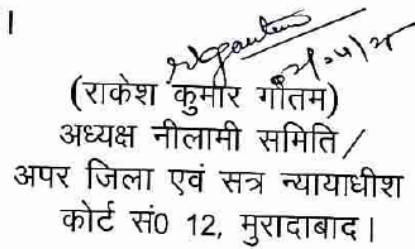 ।
(राकेश कुमार गौतम)
अध्यक्ष नीलामी समिति /
अपर जिला एवं सत्र न्यायाधीश
कोर्ट सं0 12, मुरादाबाद।